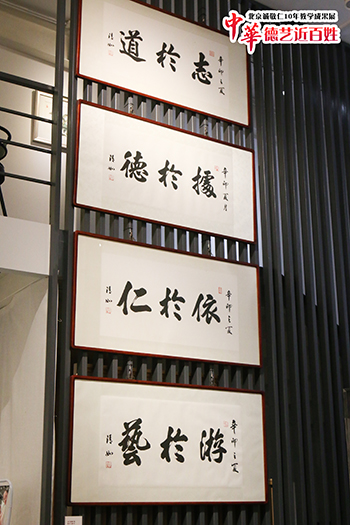 北京诚敬仁10年教学成果展
中華德艺近百姓
辛卯之夏
志於道
清如
辛卯夏月
據於德
清如
辛卯之夏
依於仁
清如
辛卯之夏
游於藝
清如